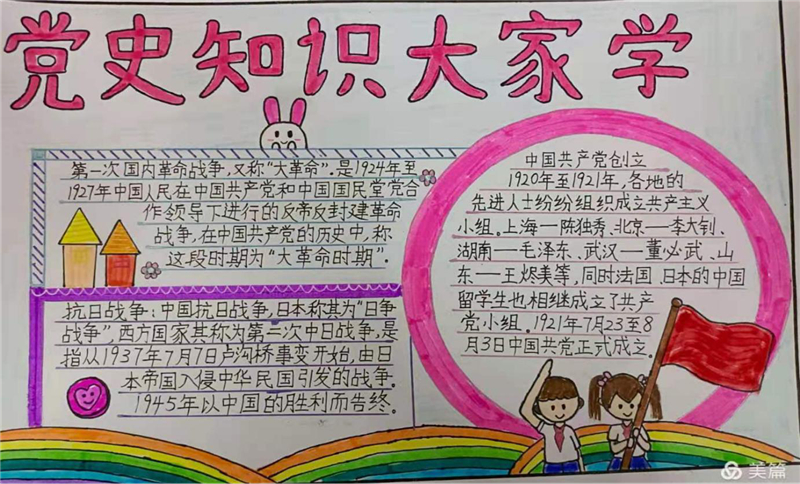 党史知识大家学
第一次国内革命战争,又称“大革命”.是1924年至
1927年中国人民在中国共产党和中国国民党党合
作领导下进行的反帝反封建革命
战争,在中国共产党的历史中,称
这段时期为“大革命时期”.
抗日战争:中国抗日战争,日本称其为“日争
战争”,西方国家其称为第二次中日战争,是
指从1937年7月7日卢沟桥事变开始,由日
本帝国入侵中华民国引发的战争.
1945年以中国的胜利而告终。
中国共产党创立
1920年至1921年,各地的
先进人士纷纷组织成立共产主义
小组。上海—陈独秀、北京—李大钊、
湖南—毛泽东、武汉—董必武、山
东—王烬美等,同时法国、日本的中国
留学生也相继成立了共产
党小组。1921年7月23至8
月3日中国共党正式成立。
美篇